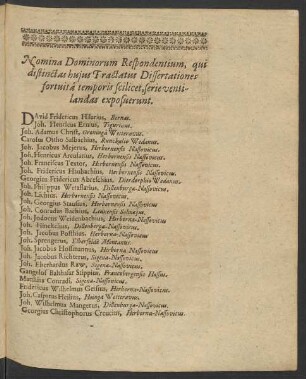 Nomina Dominorum Respondentium, qui
distinctas hujus Tractatus Dissertationes
fortuitâ temporis scilicet, serie venti-
landas exposuerunt.
DAvid Fridericus Hilerius, Bernas.
Joh. Henricus Erarus, Tigurinus.
Joh. Adamus Christ, Weteravus.
Carolus Otto Salbachius, Wedanus.
Joh. Jacobus Mejerus, Herbornensis Nassovicus.
Joh. Henricus Arnoldus, Herbornensis Nassovicus.
Joh. Franciscus Textor, Herbornensis Nassovicus.
Joh. Fridericus Herbornensis Nassovicus.
Georgius Fridericus Wedanus.
Joh. Philippus Wetzlarius, Dillenberga-Nassovicus.
Joh. Herbornensis Nassovicus.
Joh. Georgius Stausius, Herbornensis Nassovicus.
Joh. Conradus Bachius,
Joh. Jodocus Weidenbachius, Herborna-Nassovicus.
Joh. Dillenberga-Nassovicus.
Joh. Jacobus Posthius, Herborna-Nassovicus
Joh. Sprengerus, Elberfeldâ Montanus.
Joh. Jacobus Hoffmannus, Herborna-Nassovicus
Joh. Jacobus Richterus, Sigena-Nassovicus.
Joh. Eberhardus Raw, Sigena-Nassovicus.
Gangolfus Balthasar Stippius, Francobergensis Hassus.
Matthias Conradi, Sigena-Nassovicus.
Fridericus Wilhelmus Geisius, Herborna-Nassovicus.
Joh. Casparus Heisius, Weteravus.
Joh. Wilhelmus Mangerus, Dillenburga-Nassovicus.
Georgius Christophorus Creutius, Herborna-Nassovicus.